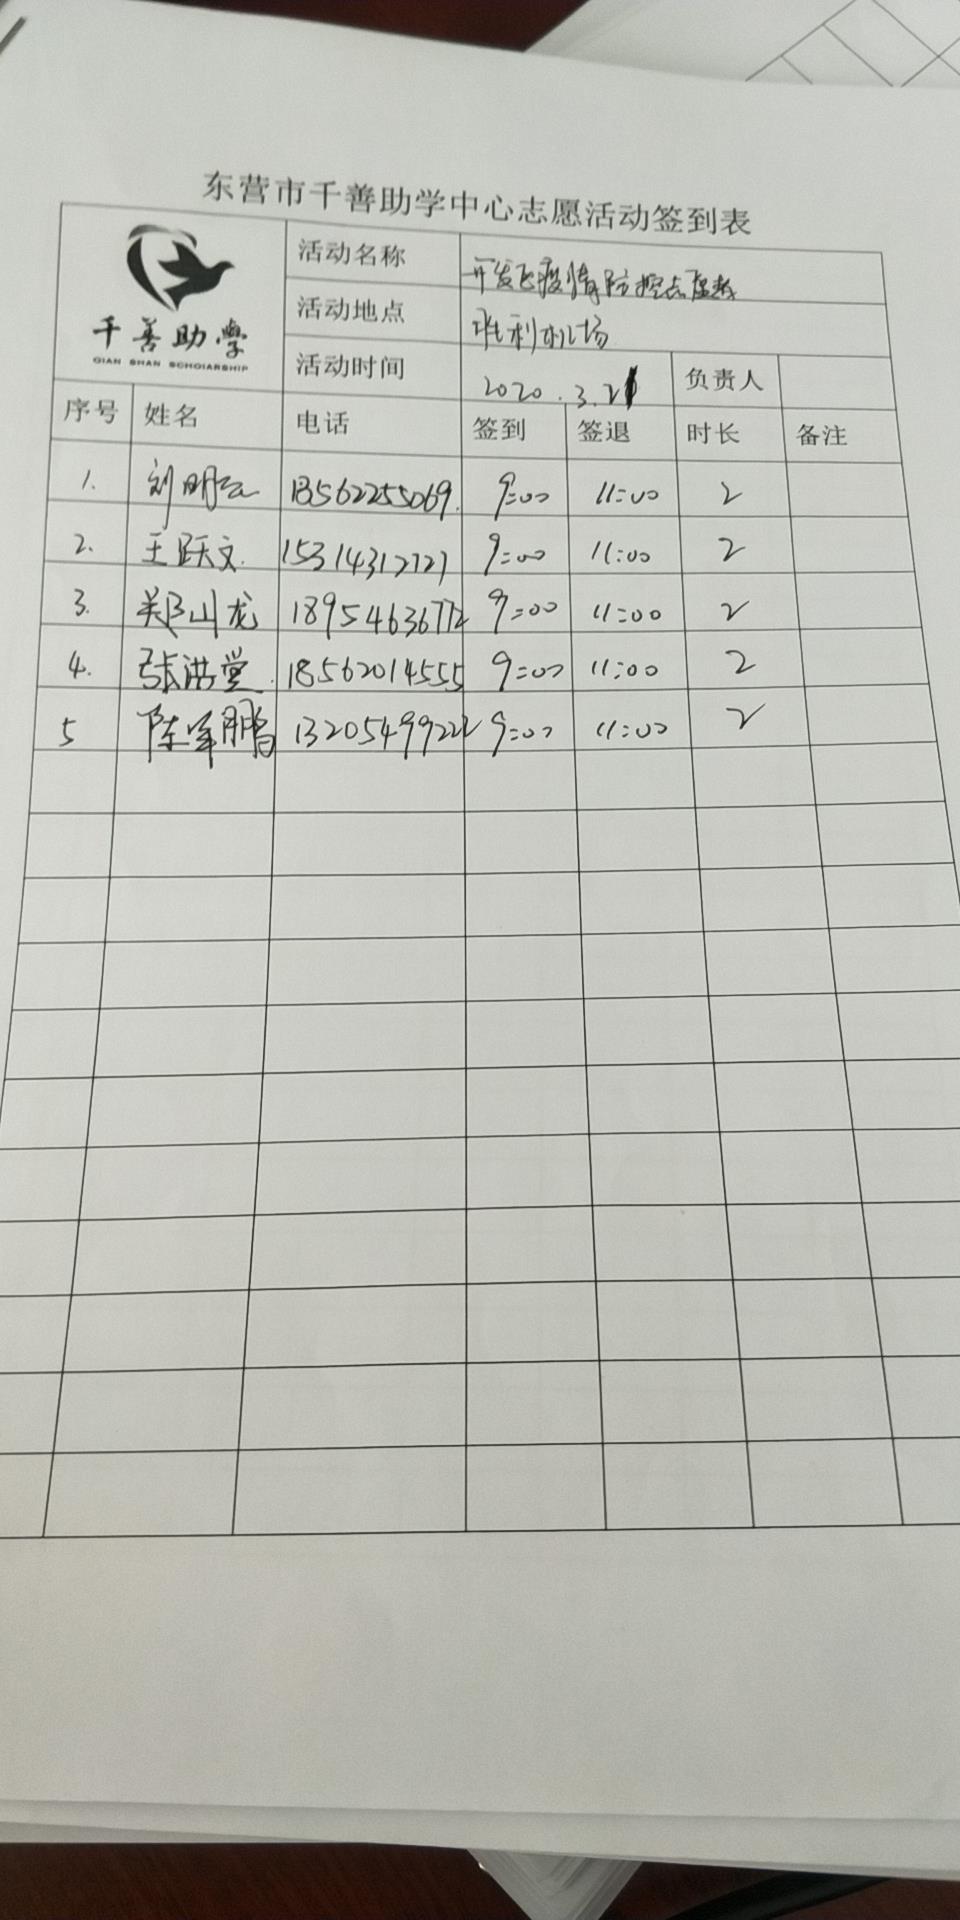 东营市千善助学中心志愿活动签到表
千善助学
QIAN SHAN SCHOLARSHIP
活动名称 开发区疫情防控点值勤
活动地点 胜利机场
活动时间 2020.3.21 负责人
序号 姓名 电话 签到 签退 时长 备注
1. 刘明 13562255069. 9:00 11:00 2
2. 王跃文. 15314312121 9:00 11:00 2
3. 郑山龙 18954636772 9:00 11:00 2
4. 张洪堂. 18562014555 9:00 11:00 2
5 陈军鹏 13205499222 9:00 11:00 2